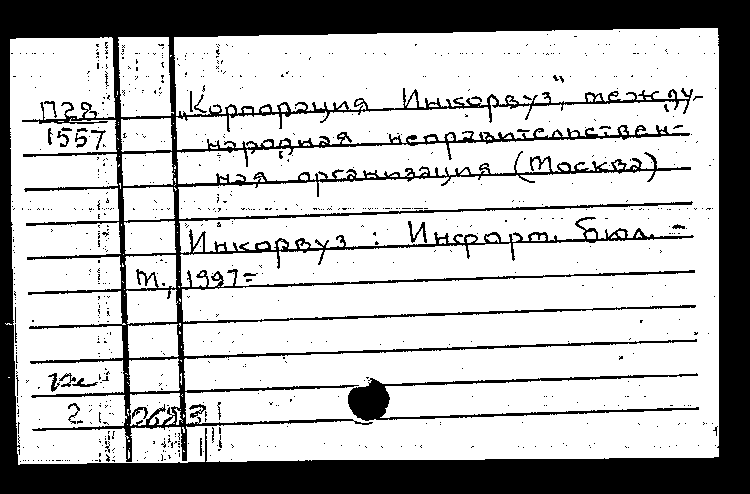 П28 „Корпорация Инкорвуз", между-
1557 народная неправительствен-
ная организация (Москва)
Инкорвуз : Информ. бюл. =
М., 1997=
2